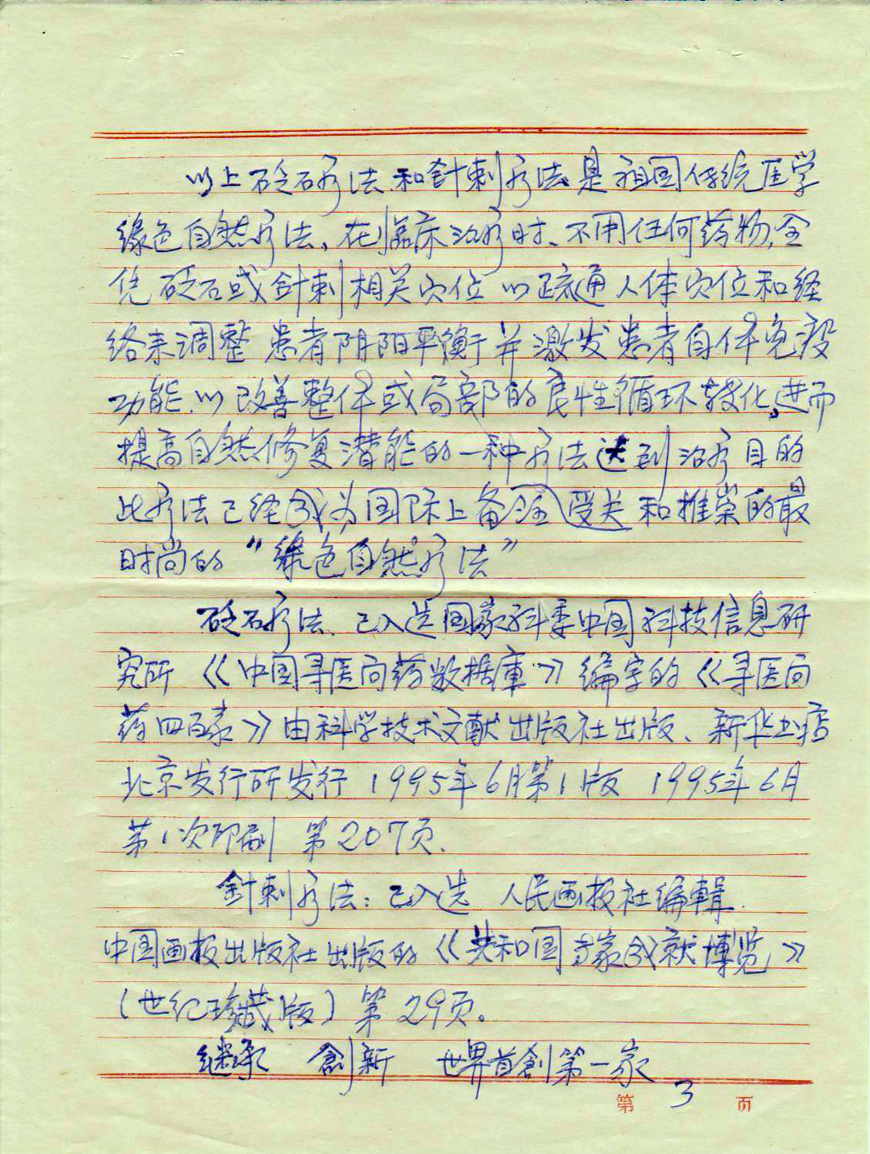 以上砭石疗法和針刺疗法是祖国传统医学
綠色自然疗法、在临床治疗时、不用任何药物,全
凭砭石或針刺相关穴位以疏通人体穴位和经
络来调整患者阴阳平衡并激发患者自体免疫
功能.以改善整体或局部的良性循环转化,进而
提高自然修复潜能的一种疗法达到治疗目的
此疗法已经成为国际上备受关和推崇的最
时尚的“綠色自然疗法”
砭石疗法、已入选国家科委中国科技信息研
究所《中国寻医问药数据庫》编字的《寻医问
药四百家》由科学技术文献出版社出版、新华书店
北京发行所发行 1995年6月第1版 1995年6月
第1次印刷 第207页.
針刺疗法：已入选 人民画报社编輯.
中国画报出版社出版的《共和国专家成就博览》
(世纪珍藏版) 第29页。
继承 創新 世界首創第一家
第 3 页